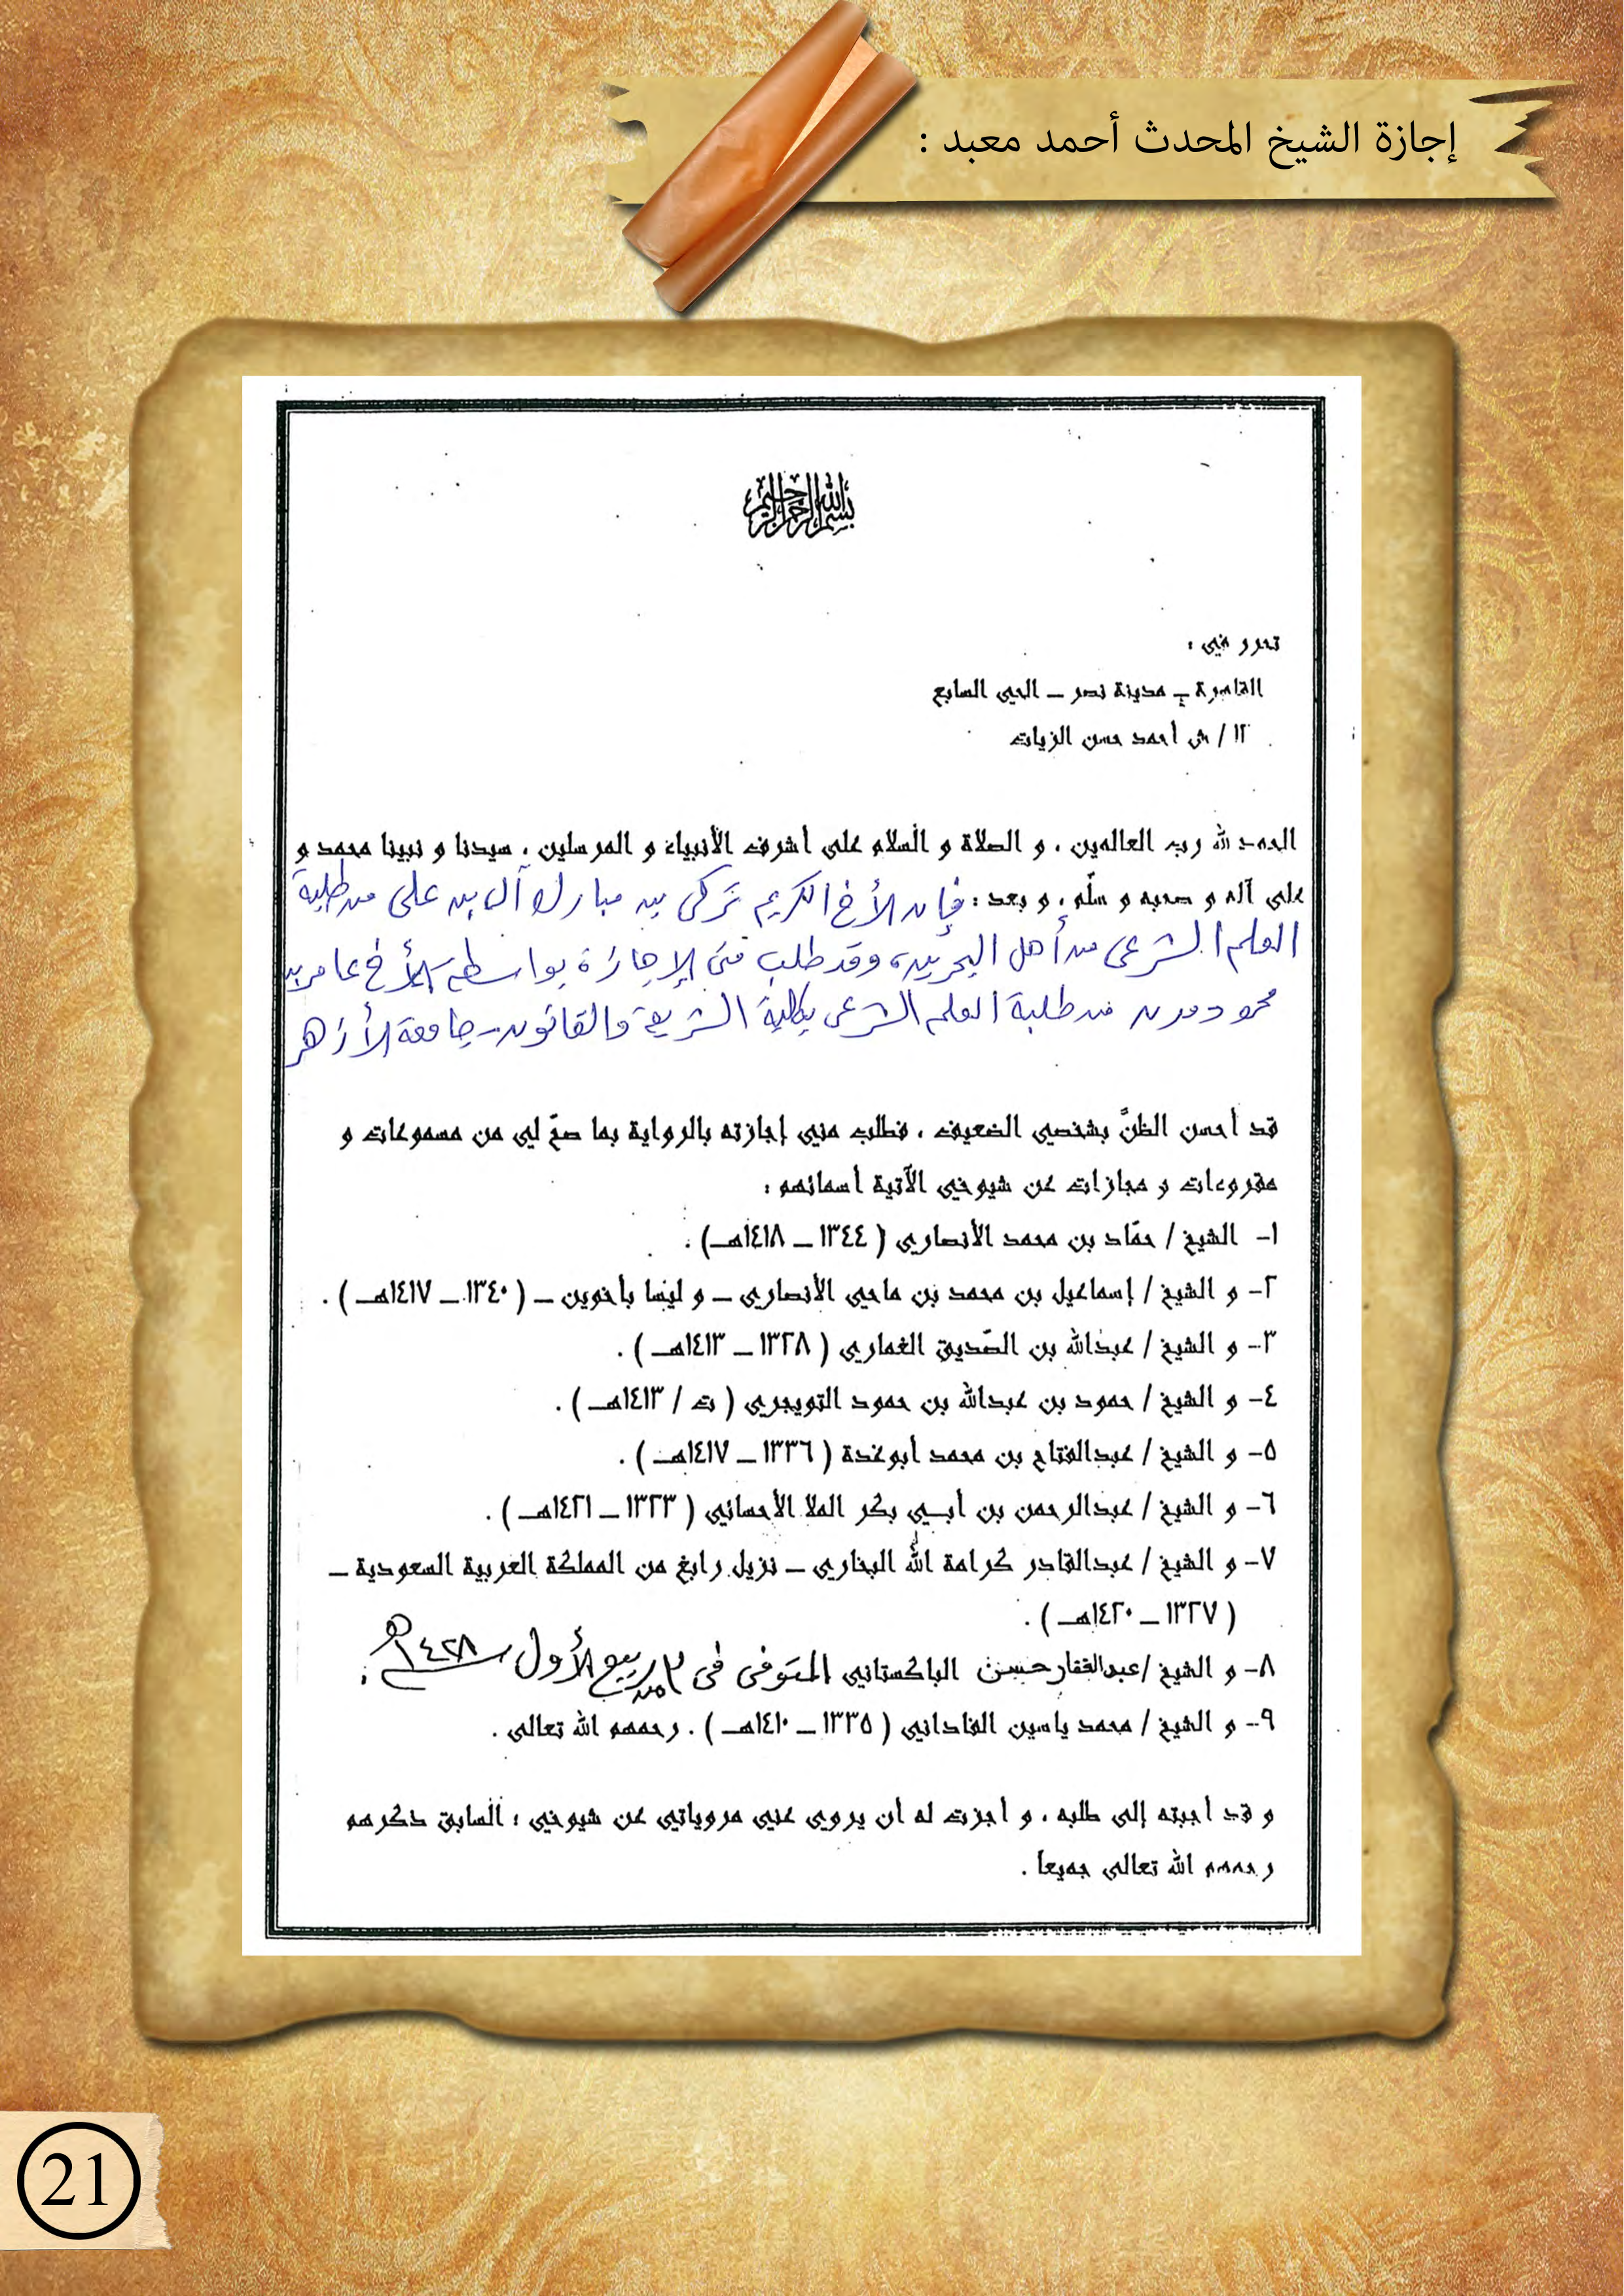 إجازة الشيخ المحدث أحمد معبد :
بسم الله الرحمن الرحيم
تحرر في :
القاهرة – مدينة نصر – الحي السابع
١٢ / ش أحمد حسن الزيات
الحمد لله رب العالمين ، و الصلاة و السلام على أشرف الأنبياء و المرسلين ، سيدنا و نبينا محمد و
على آله و صحبه و سلّم ، و بعد : فإن الأخ الكريم تركى بن مبارك آل بن على من طلبة
العلم الشرعى من أهل البحرين، وقد طلب منى الإجازة بواسطة الأخ عامر بن
محمود من طلبة العلم الشرعى بكلية الشريعة والقانون - جامعة الأزهر
قد أحسن الظنَّ بشخصي الضعيف ، فطلب مني إجازته بالرواية بما صحّ لي من مسموعات و
مقروءات و مجازات عن شيوخي الآتية أسمائهم :
١- الشيخ / حمّاد بن محمد الأنصاري ( ١٣٤٤ – ١٤١٨هـ) .
٢- و الشيخ / إسماعيل بن محمد بن ماحي الأنصاري – و ليسا بأخوين – ( ١٣٤٠ – ١٤١٧هـ ) .
٣- و الشيخ / عبدالله بن الصّديق الغماري ( ١٣٢٨ – ١٤١٣هـ ) .
٤- و الشيخ / حمود بن عبدالله بن حمود التويجري ( ت / ١٤١٣هـ ) .
٥- و الشيخ / عبدالفتاح بن محمد أبوغدة ( ١٣٣٦ – ١٤١٧هـ ) .
٦- و الشيخ / عبدالرحمن بن أبي بكر الملا الأحسائي ( ١٣٢٣ – ١٤٢١هـ ) .
٧- و الشيخ / عبدالقادر كرامة الله البخاري – نزيل رابغ من المملكة العربية السعودية –
( ١٣٢٧ – ١٤٢٠هـ ) .
٨- و الشيخ / عبدالغفار حسن الباكستاني المتوفى فى ربيع الأول ١٤٢٨هـ .
٩- و الشيخ / محمد ياسين الفاداني ( ١٣٣٥ – ١٤١٠هـ ) . رحمهم الله تعالى .
و قد أجبته إلى طلبه ، و أجزت له أن يروي عني مروياتي عن شيوخي ؛ السابق ذكرهم
رحمهم الله تعالى جميعا .
21